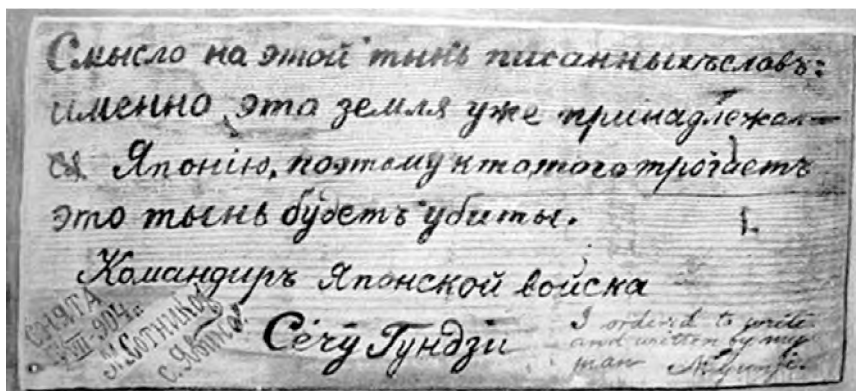 Смысло на этой тынь писанныхъ словъ:
именно, эта земля уже принадлежал—
ся Японiю, поэтому ктотого трогаетъ
это тынь будетъ убиты.
Командиръ Японской войска
Сечу Гундзи
СНЯТА
VII-904г.
И. Сотников
с. Явино.
I ordered to write
and written by my
man N. Gunji.